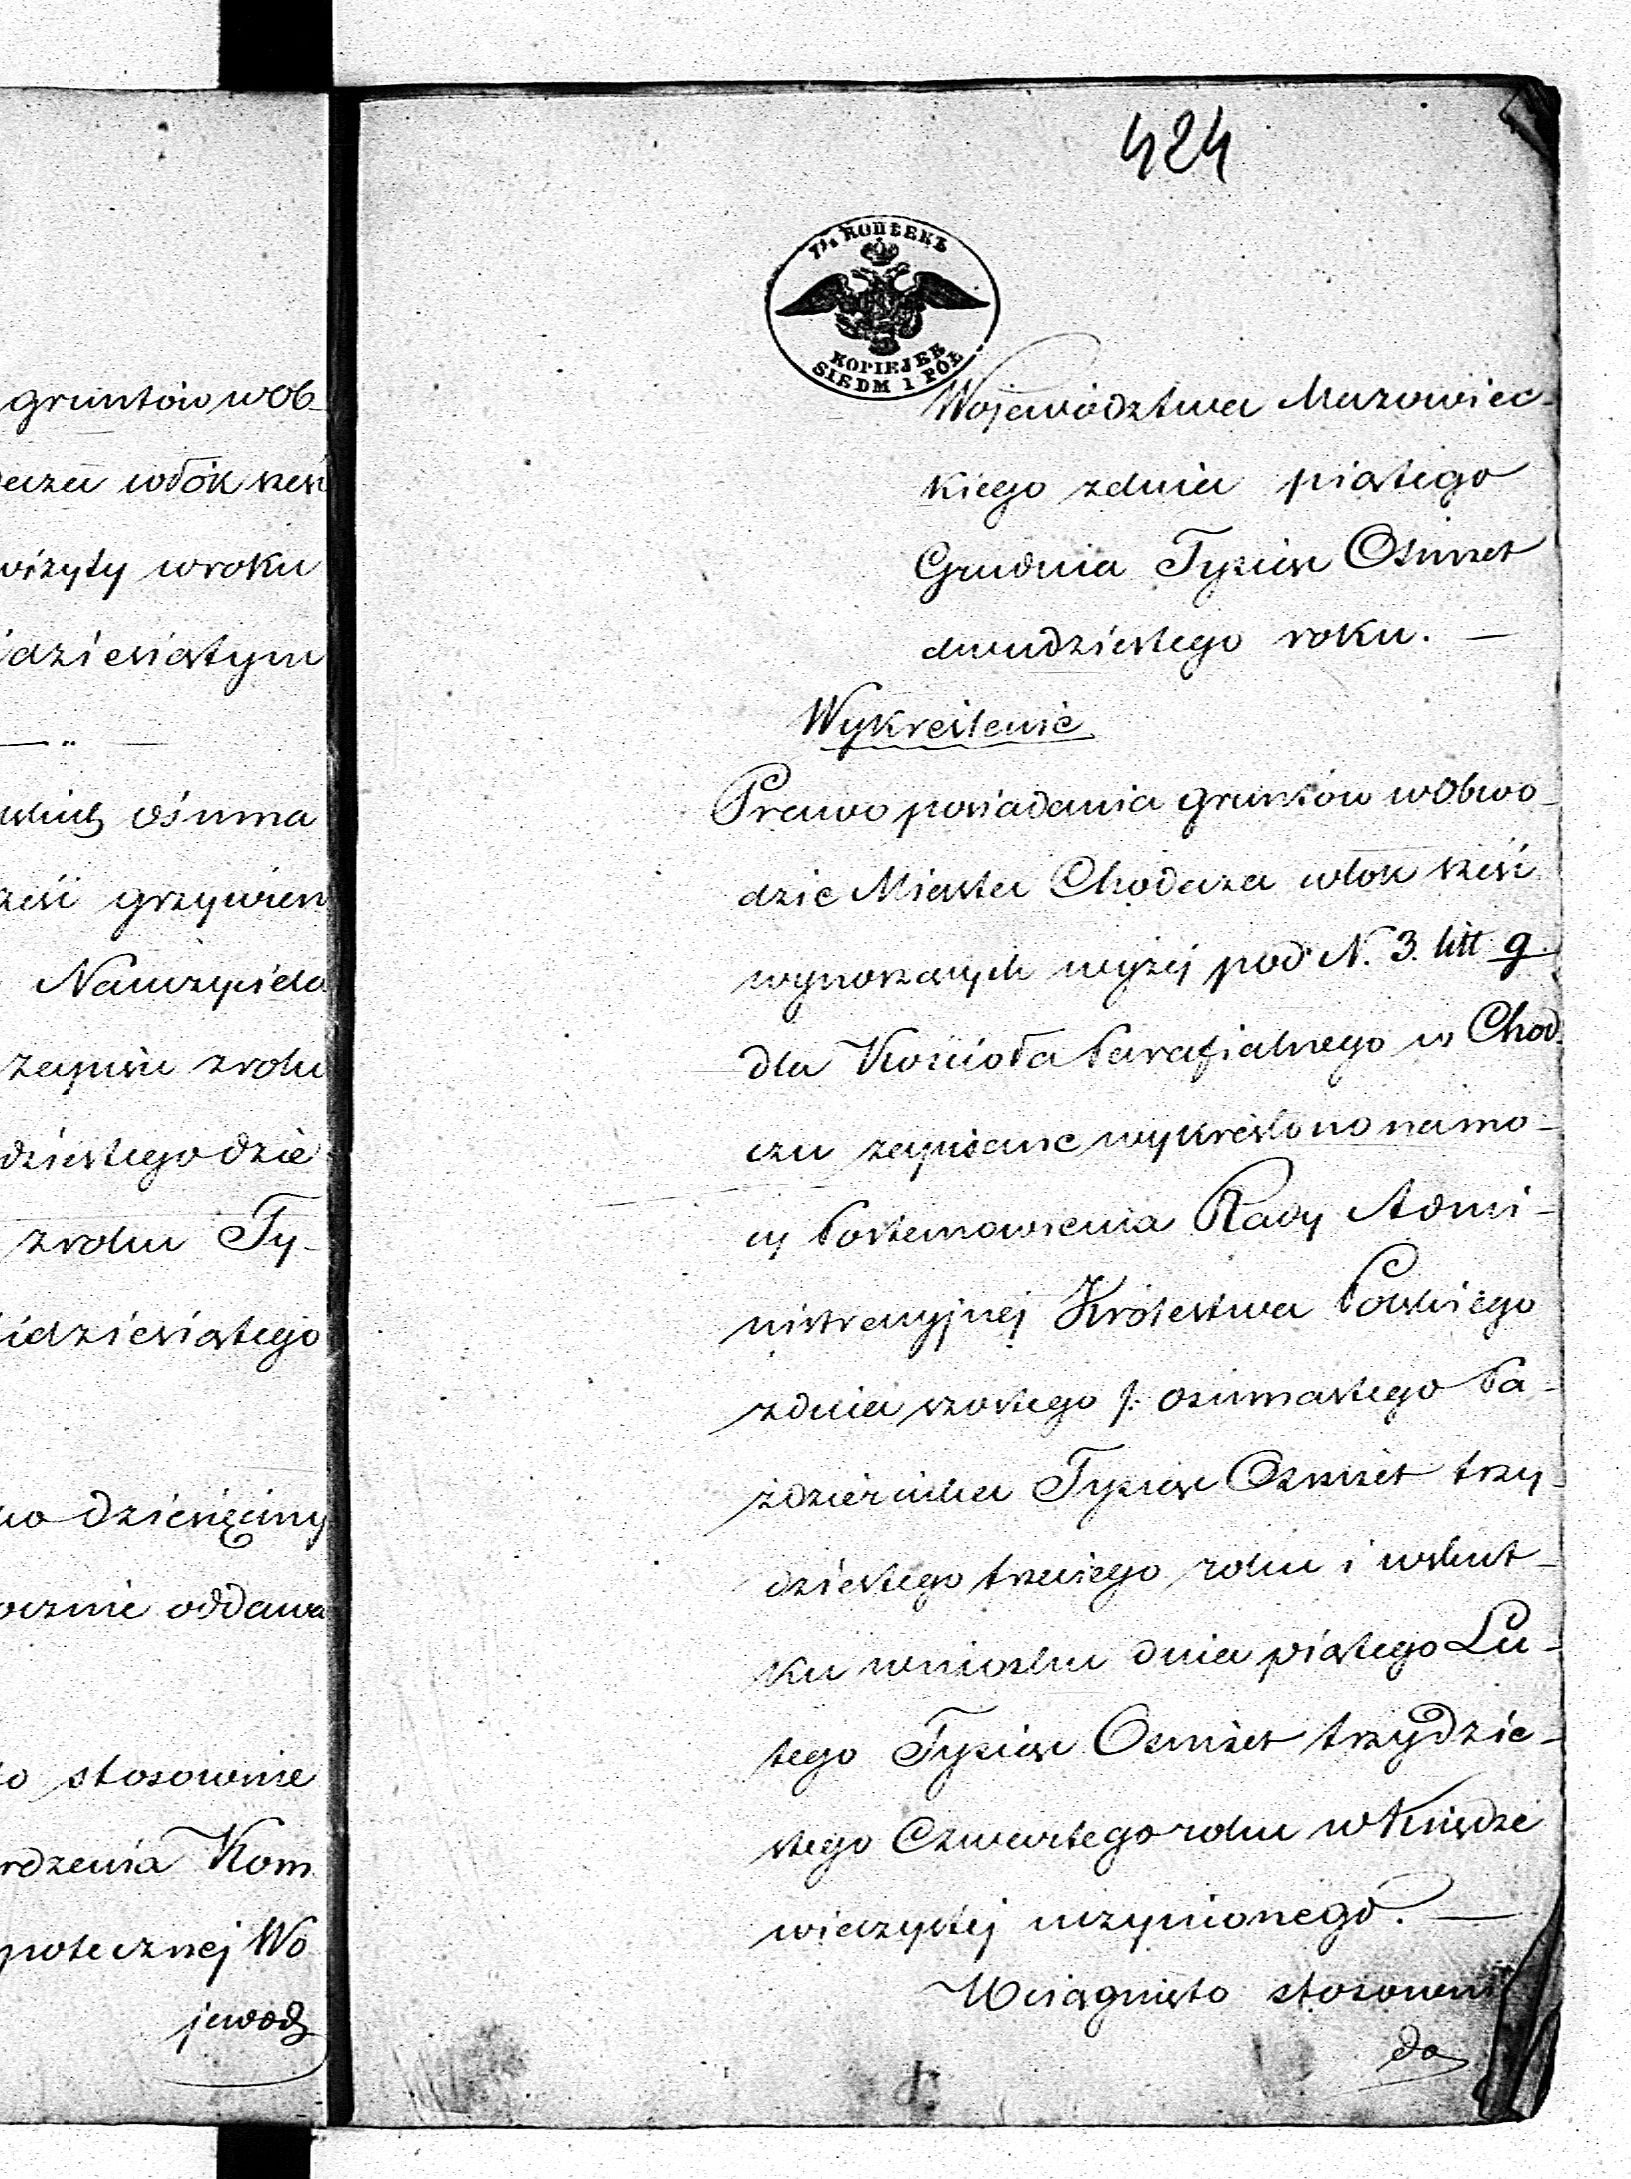 gruntów w Ob-
włok sześć
wizyty w roku
idziesiątym
ośmna
grzywien
Nauczyciela
zapisu z roku
dziestego dzie
z roku Ty-
idziesiątego
dziesięciny
ocznie oddawa
stosownie
rdzenia Kom
potecznej Wo
jewodz
424
7½ КОПѢЕКЪ
KOPIEJEK
SIEDM I PÓŁ
Województwa Mazowiec-
kiego z dnia piątego
Grudnia Tysiąc Ośmset
dwudziestego roku. —
Wykreślenie
Prawo posiadania gruntów w Obwo-
dzie Miasta Chodcza włok sześć
wynoszących wyżej pod N. 3. litt g.
dla Kościoła Parafialnego w Chod-
czu zapisane wykreślono na mo-
cy Postanowienia Rady Admi-
nistracyjnej Królestwa Polskiego
z dnia szostego /: osimnastego Pa-
ździernika Tysiąc Ośmset trzy-
dziestego trzeciego roku i wskut-
ku wniosku dnia piątego Lu-
tego Tysiąc Ośmset trzydzie-
stego Czwartego roku w Księdze
wieczystej uczynionego. —
Wciągnięto stosownie
do